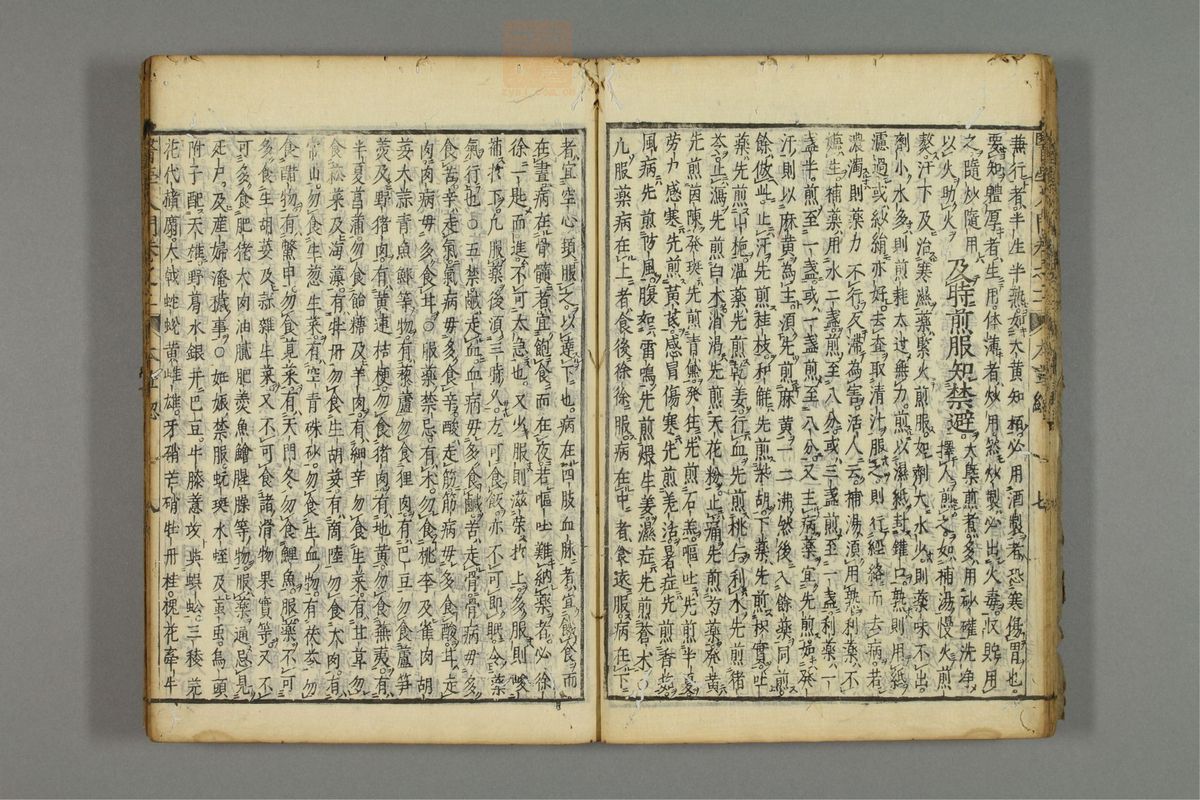 兼行者半生半熟如大黄知栢必用酒製者恐寒傷胃也
要知體厚者生用体薄者炒用然炒製必出火毒收貯用
之隨炒隨用
及時煎服知禁避
大槩煎者多用砂礶洗净
擇人煎之如補湯慢火煎
以火助火
熬汗下及治寒濕藥緊火煎服如劑大水少則藥味不出
劑小水多則煎耗太过無力煎以濕紙封鑵口熟則用紙
濾過或紗絹亦好去査取清汁服之則行經絡而去病若
濃濁則藥力不行反滯為害活人云補湯須用熟利藥不
嫌生補藥用水二盞煎至八分或三盞煎至一盞利藥一
盞半煎至一盞或一盞煎至八分又主病藥宜先煎如發
汗則以麻黄為主須先煎麻黄一二沸然後入餘藥同煎
餘倣此止汗先煎桂枝和觧先煎柴胡下藥先煎枳實吐
藥先煎山梔温藥先煎乾姜行血先煎桃仁利水先煎猪
苓止瀉先煎白术消渇先煎天花粉止痛先煎芍藥發黄
先煎茵陳發斑先煎青黛發狂先煎石羔嘔吐先煎半夏
劳力感寒先煎黄芪感冒傷寒先煎羌活暑症先煎香薷
風病先煎防風腹如雷鳴先煎煨生姜濕症先煎蒼术〇
凢服藥病在上者食後徐徐服病在中者食遠服病在下
者宜空心頻服之以達下也病在四肢血脉者宜飢食而
在晝病在骨髓者宜飽食而在夜若嘔吐難納藥者必徐
徐一匙而進不可太急也又火服則滋荣扵上多服則峻
補扵下凢服藥後須三時久方可食飯亦不可即眠令藥
氣行也〇五禁鹹走血血病毋多食鹹苦走骨骨病毋多
食苦辛走氣氣病毋多食辛酸走筋筋病毋多食酸甘走
肉肉病毋多食甘〇服藥禁忌有术勿食桃李及雀肉胡
荽大蒜青魚鮓等物有藜蘆勿食狸肉有巴豆勿食蘆笋
羹及野猪肉有黄連桔梗勿食猪肉有地黄勿食蕪荑有
半夏菖蒲勿食飴糖及羊肉有細辛勿食生菜有甘草勿
食菘菜及海藻有牡丹勿食生胡荽有商陸勿食犬肉有
常山勿食生葱生菜有空青硃砂勿食生血物有茯苓勿
食醋物有鱉甲勿食莧菜有天門冬勿食鯉魚服藥不可
多食生胡荽及蒜雜生菜又不可食諸滑物果實等又不
可多食肥猪犬肉油膩肥羹魚鱠腥臊等物服藥通忌見
死尸及産婦淹穢事〇姙娠禁服蚖斑水蛭及虻虫烏頭
附子配天雄野葛水銀并巴豆牛膝薏苡與蜈蚣三稜芫
花代赭麝大戟蛇蛻黄雌雄牙硝芒硝牡丹桂槐花牽牛